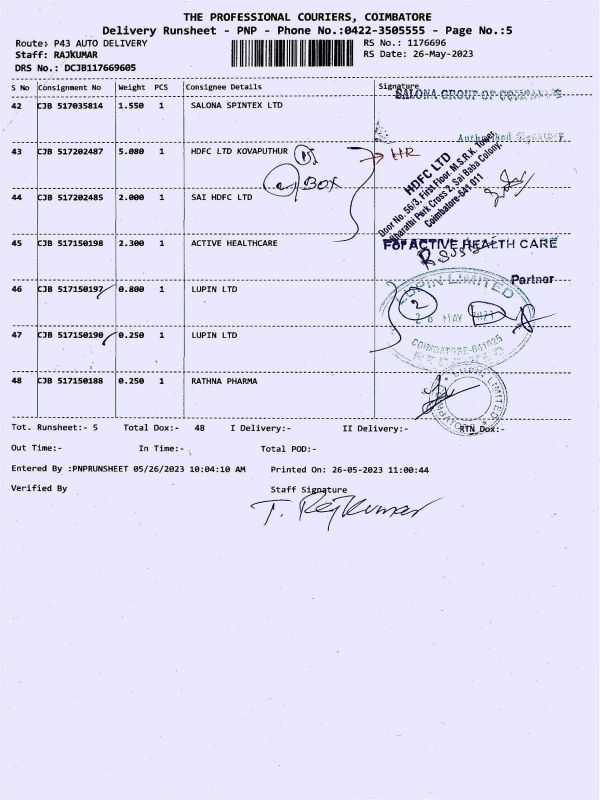 THE PROFESSIONAL COURIERS, COIMBATORE
Delivery Runsheet - PNP - Phone No.:0422-3505555 - Page No.:5
Route: P43 AUTO DELIVERY
RS No.: 1176696
Staff: RAJKUMAR
RS Date: 26-May-2023
DRS No.: DCJB117669605
S No Consignment No Weight PCS Consignee Details Signature
42 CJB 517035814 1.550 1 SALONA SPINTEX LTD
SALONA GROUP OF COMPANIES
Authorised Signatory
43 CJB 517202487 5.080 1 HDFC LTD KOVAPUTHUR
HR
2 BOX
HDFC LTD
Door No. 56/3, First Floor, M.S.R.K. Tower,
Bharathi Park Cross 2, Sai Baba Colony,
Coimbatore-641 011
44 CJB 517202485 2.000 1 SAI HDFC LTD
45 CJB 517150198 2.300 1 ACTIVE HEALTHCARE
For ACTIVE HEALTH CARE
Partner
46 CJB 517150197 0.800 1 LUPIN LTD
LUPIN LIMITED
2
26 MAY
COIMBATORE-641025
RECEIVED
47 CJB 517150190 0.250 1 LUPIN LTD
48 CJB 517150188 0.250 1 RATHNA PHARMA
Tot. Runsheet:- 5 Total Dox:- 48 I Delivery:- II Delivery:- RTN Dox:-
Out Time:- In Time:- Total POD:-
Entered By :PNPRUNSHEET 05/26/2023 10:04:10 AM Printed On: 26-05-2023 11:00:44
Verified By Staff Signature
T. Rajkumar